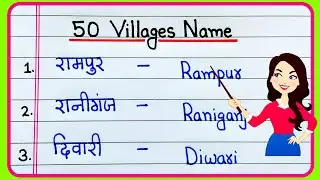 50 Villages Name
1. रामपुर – Rampur
2. रानीगंज – Raniganj
3. दिवारी – Diwari